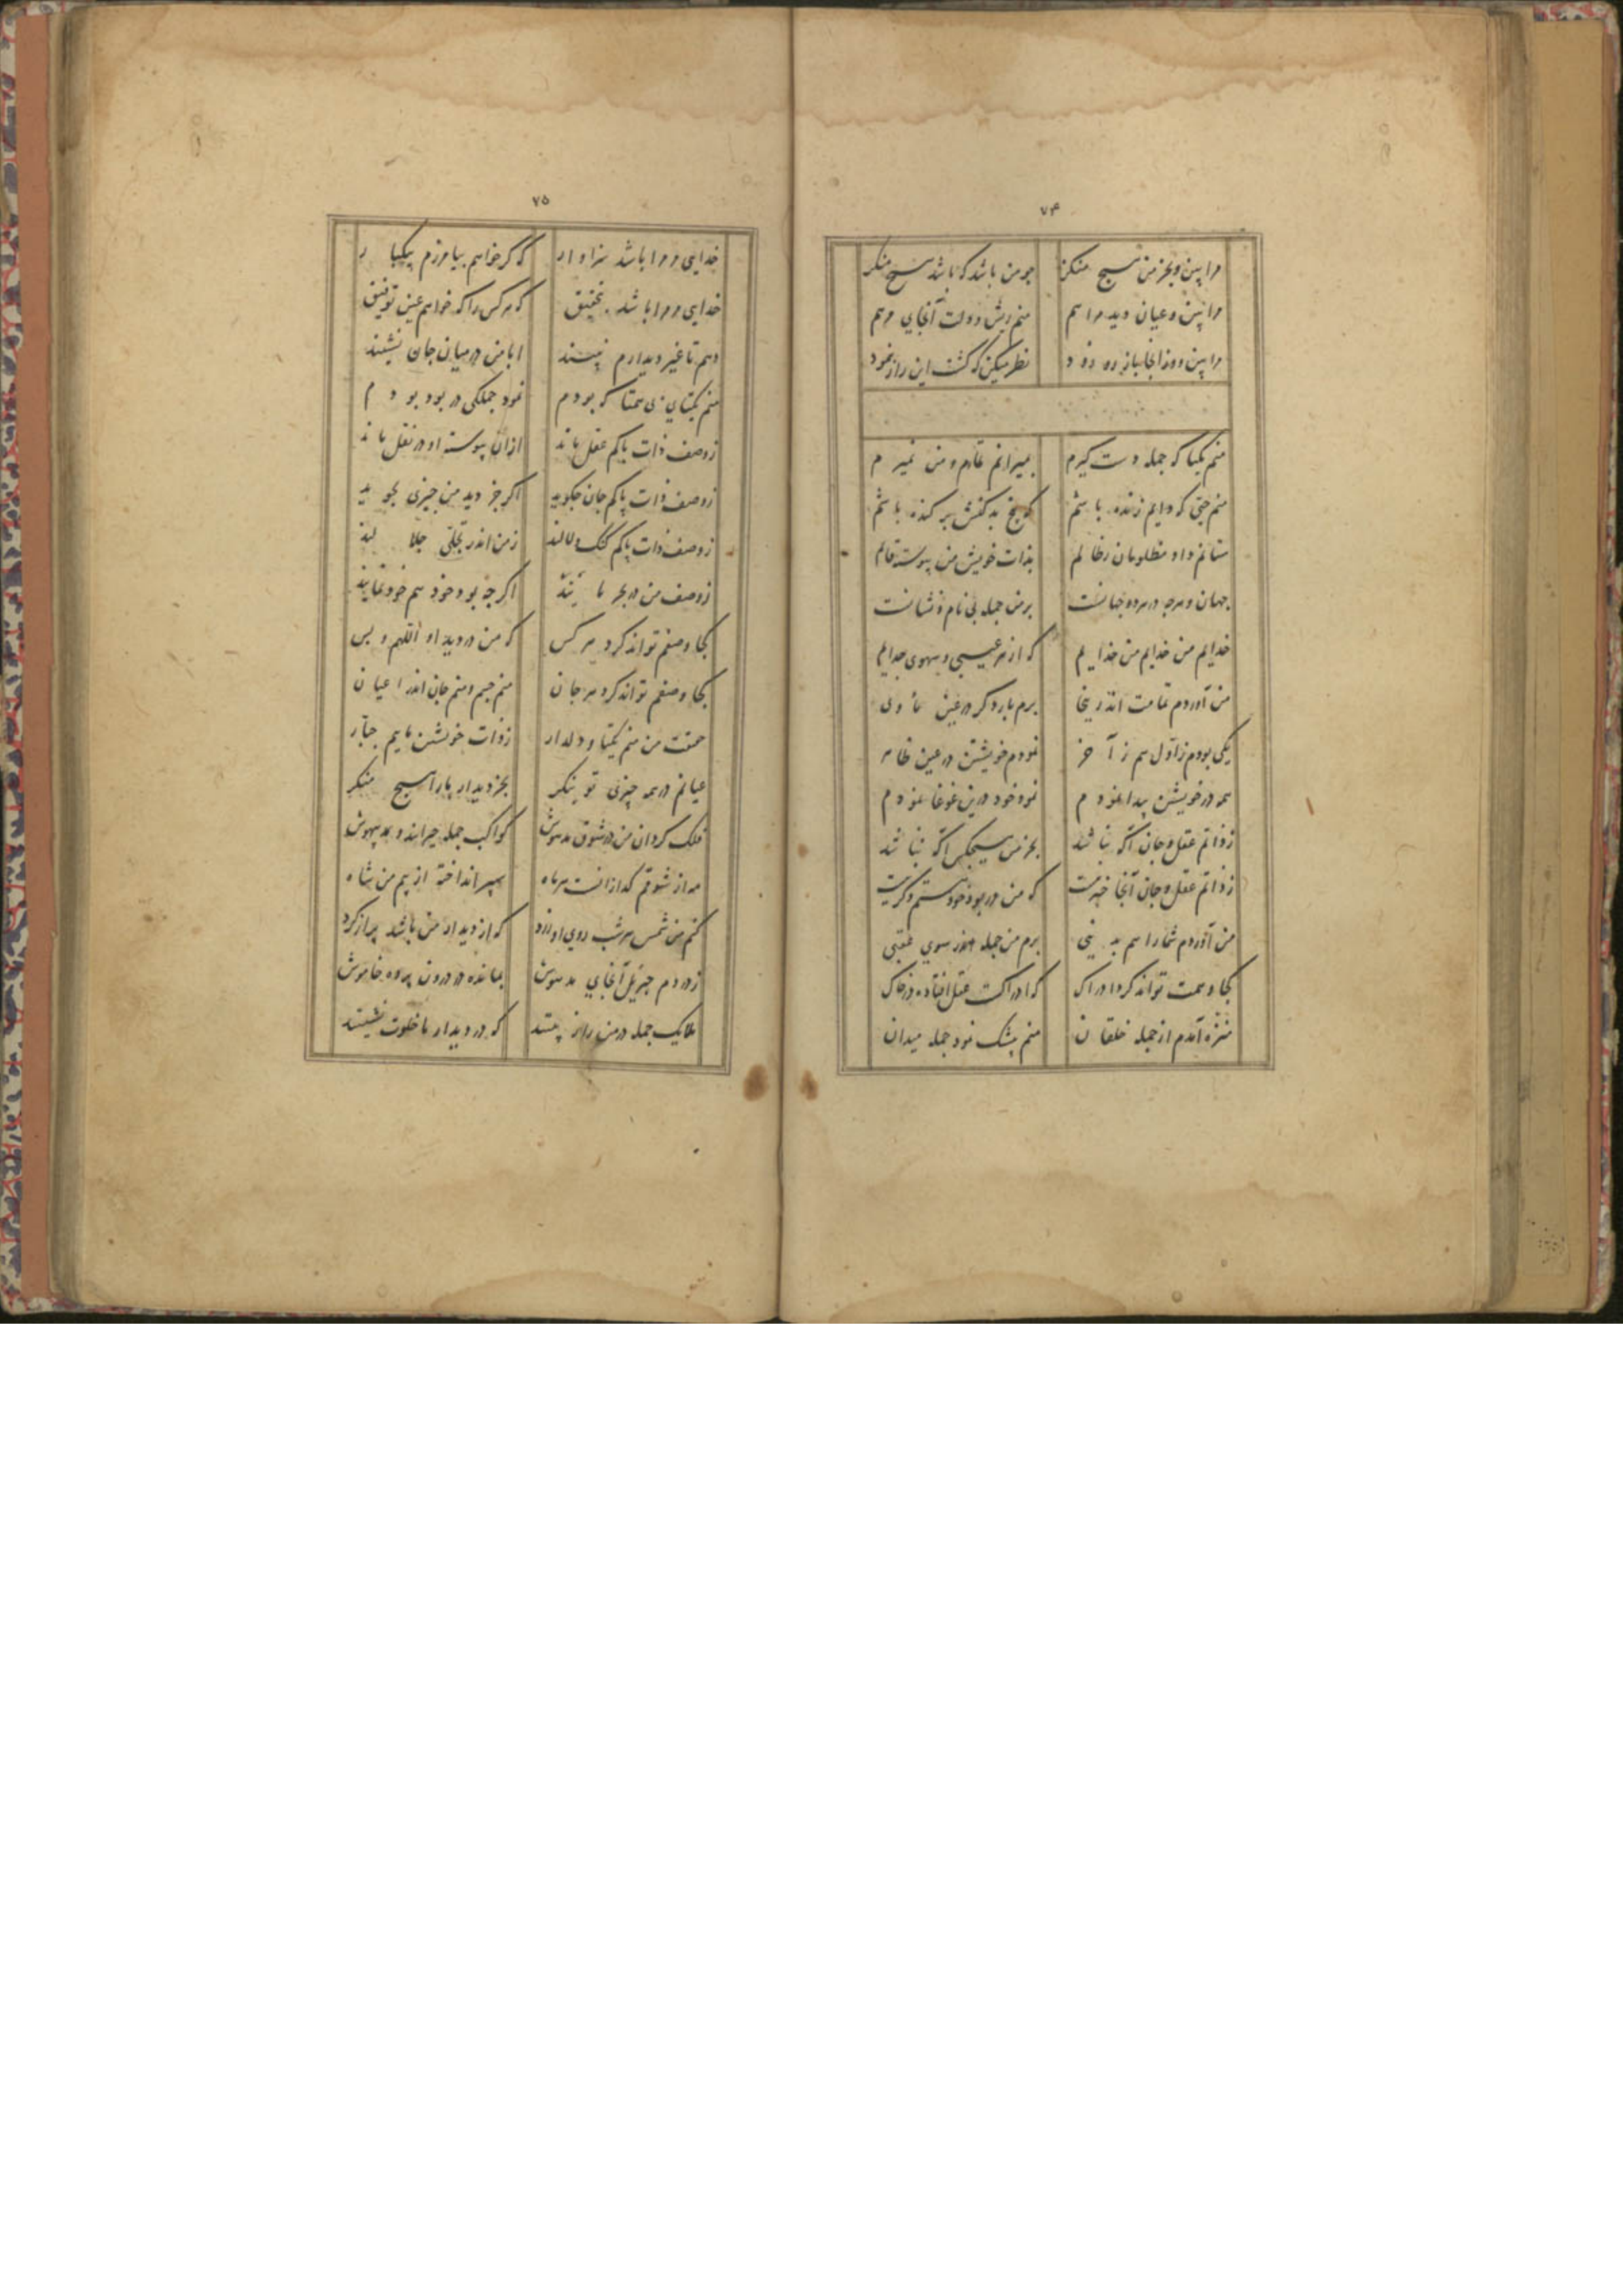 ۷۴
مرا بین و بجز من هیچ منکر چو من باشد که باشد هیچ منکر
مرا بین و عیان دید مرا هم منم ریش و دولت آنجایی مرهم
مرا بین و در اینجا باز ره زود نظر میکن که گشت این راز بنمود
منم یکتا که جمله دست گیرم بمیرانم تمام و من نمیرم
منم حیّ که دایم زنده باشم که بیخ بد کنش بر کنده باشم
ستانم داد مظلومان ز ظالم بذات خویش من پیوسته قائم
جهان و هرچه در هر دو جهانست بر من جمله بی نام و نشانست
خدایم من خدایم من خدایم که از هر عیبی و سهوی جدایم
من آوردم تمامت اندر ینجا برم بار دگر در عین ماوی
یکی بودم ز اول هم ز آخر نمودم خویشتن در عین ظاهر
همه در خویشتن پیدا نمودم نمود خود درین غوغا نمودم
ز ذاتم عقل و جان آگه نباشد بجز من هیچکس آگه نباشد
ز ذاتم عقل و جان آنجا خبر نیست که من در بود خود هستم دگر نیست
من آوردم شما را هم به دنیی برم من جمله اندر سوی عقبی
کجا وصمت تواند کرد ادراک که ادراکست عقل افتاده در خاک
منزه آمدم از جمله خلقان منم بیشک نمود جمله میدان
۷۵
خدایی مر مرا باشد سزاوار که گر خواهم بیامرزم بیکبار
خدایی مر مرا باشد بتحقیق که هر کس را که خواهم عین توفیق
دهم تا غیر دیدارم نبیند ابا من در میان جان نشیند
منم یکتای بی همتا که بودم نمود جملگی در بود بودم
ز وصف ذات پاکم عقل ماند ازان پیوسته او در نقل ماند
ز وصف ذات پاکم جان چگوید اگر جز دید من چیزی بجوید
ز وصف ذات پاکم گنگ و لالند ز من اندر تجلّی جلالند
ز وصف من در بحر مانند اگر چه بود خود هم خود نمایند
کجا وصفم تواند کرد هر کس که من در دید او اللهم و بس
کجا وصفم تواند کرد هر جان منم جسم و منم جان اندر اعیان
حقیقت من منم یکتا و دلدار ز ذات خویشتن مایم جبّار
عیانم در همه چیزی تو بنگر بجز دیدار یار را هیچ منگر
فلک گردان من در شوق مدهوش کواکب جمله حیرانند و بیهوش
مه از شوقم گدازانست هر ماه سپر انداخته از بیم من شاه
کنم من شمس هر شب روی او زرد که از دیدار من باشد پر از گرد
ز دردم جبرئیل آنجای مدهوش بمانده در درون پرده خاموش
ملایک جمله در من راز بینند که در دیدار ما خلوت نشینند